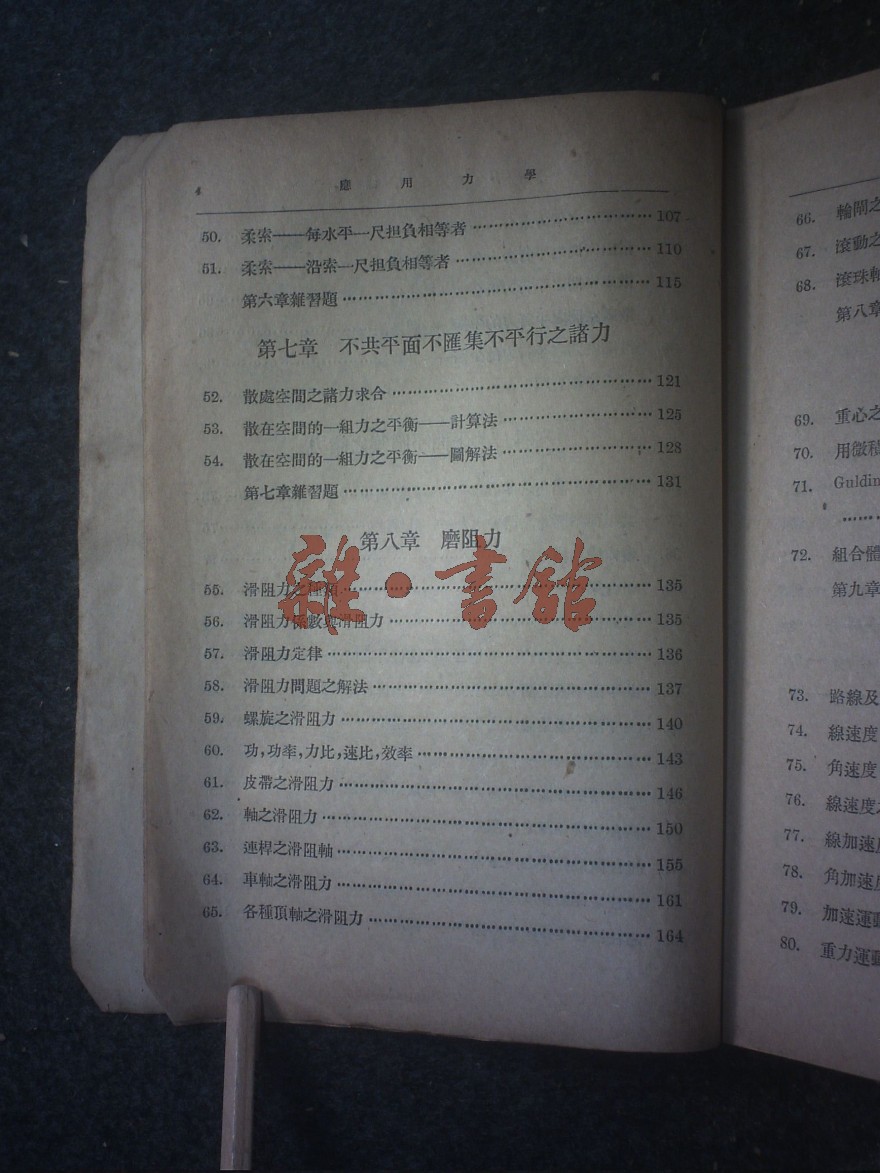 4 應用力學
50. 柔索——每水平一尺担負相等者 107
51. 柔索——沿索一尺担負相等者 110
第六章雜習題 115
第七章 不共平面不匯集不平行之諸力
52. 散處空間之諸力求合 121
53. 散在空間的一組力之平衡——計算法 125
54. 散在空間的一組力之平衡——圖解法 128
第七章雜習題 131
第八章 磨阻力
55. 滑阻力之種類 135
56. 滑阻力係數與滑阻力 135
57. 滑阻力定律 136
58. 滑阻力問題之解法 137
59. 螺旋之滑阻力 140
60. 功,功率,力比,速比,效率 143
61. 皮帶之滑阻力 146
62. 軸之滑阻力 150
63. 連桿之滑阻軸 155
64. 車軸之滑阻力 161
65. 各種頂軸之滑阻力 164
雜·書館
66. 輪閘之
67. 滾動之
68. 滾珠軸
第八章
69. 重心之
70. 用微積
71. Guldin
72. 組合體
第九章
73. 路線及
74. 線速度
75. 角速度
76. 線速度
77. 線加速
78. 角加速度
79. 加速運動
80. 重力運動